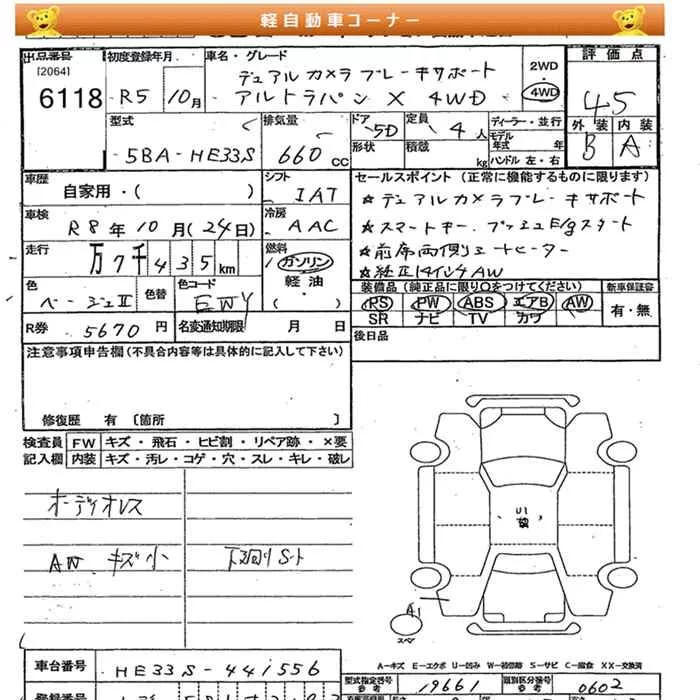 軽自動車コーナー
出品番号
[2064]
6118
初度登録年月
R5 10月
車名・グレード
デュアルカメラブレーキサポート
アルトラパン X 4WD
2WD
4WD
評価点
45
外装 内装
B A
型式
5BA-HE33S
排気量
660 cc
ドア 5D
形状
定員 4 人
積載 kg
ディーラー・並行
モデル年式 年
ハンドル 左・右
車歴
自家用・( )
シフト
IAT
冷房
AAC
セールスポイント (正常に機能するものに限ります)
☆デュアルカメラブレーキサポート
☆スマートキー、プッシュE/gスタート
☆前席両側シートヒーター
☆純正14インチAW
車検
R8年10月(24日)
走行
万7千435km
燃料
ガソリン
軽油・
( )
色
ベージュII
色替
色コード
EWY
R券 5670円
名変通知期限 月 日
装備品 (純正品に限り○をつけてください)
PS PW ABS エアB AW
SR ナビ TV カワ
新車保証書
有・無
後日品
注意事項申告欄 (不具合内容等は具体的に記入して下さい)
修復歴 有 〔箇所 〕
検査員記入欄
FW キズ・飛石・ヒビ割・リペア跡・×要
内装 キズ・汚レ・コゲ・穴・スレ・キレ・破レ
オーディオレス
AW キズ小
下廻りSート
U1
A1
スペア
A-キズ E-エクボ U-凹み W-補修跡 S-サビ C-腐食 XX-交換済
車台番号
HE33S-441556
型式指定番号
参考
19661
類別区分番号
参考
0602
登録番号